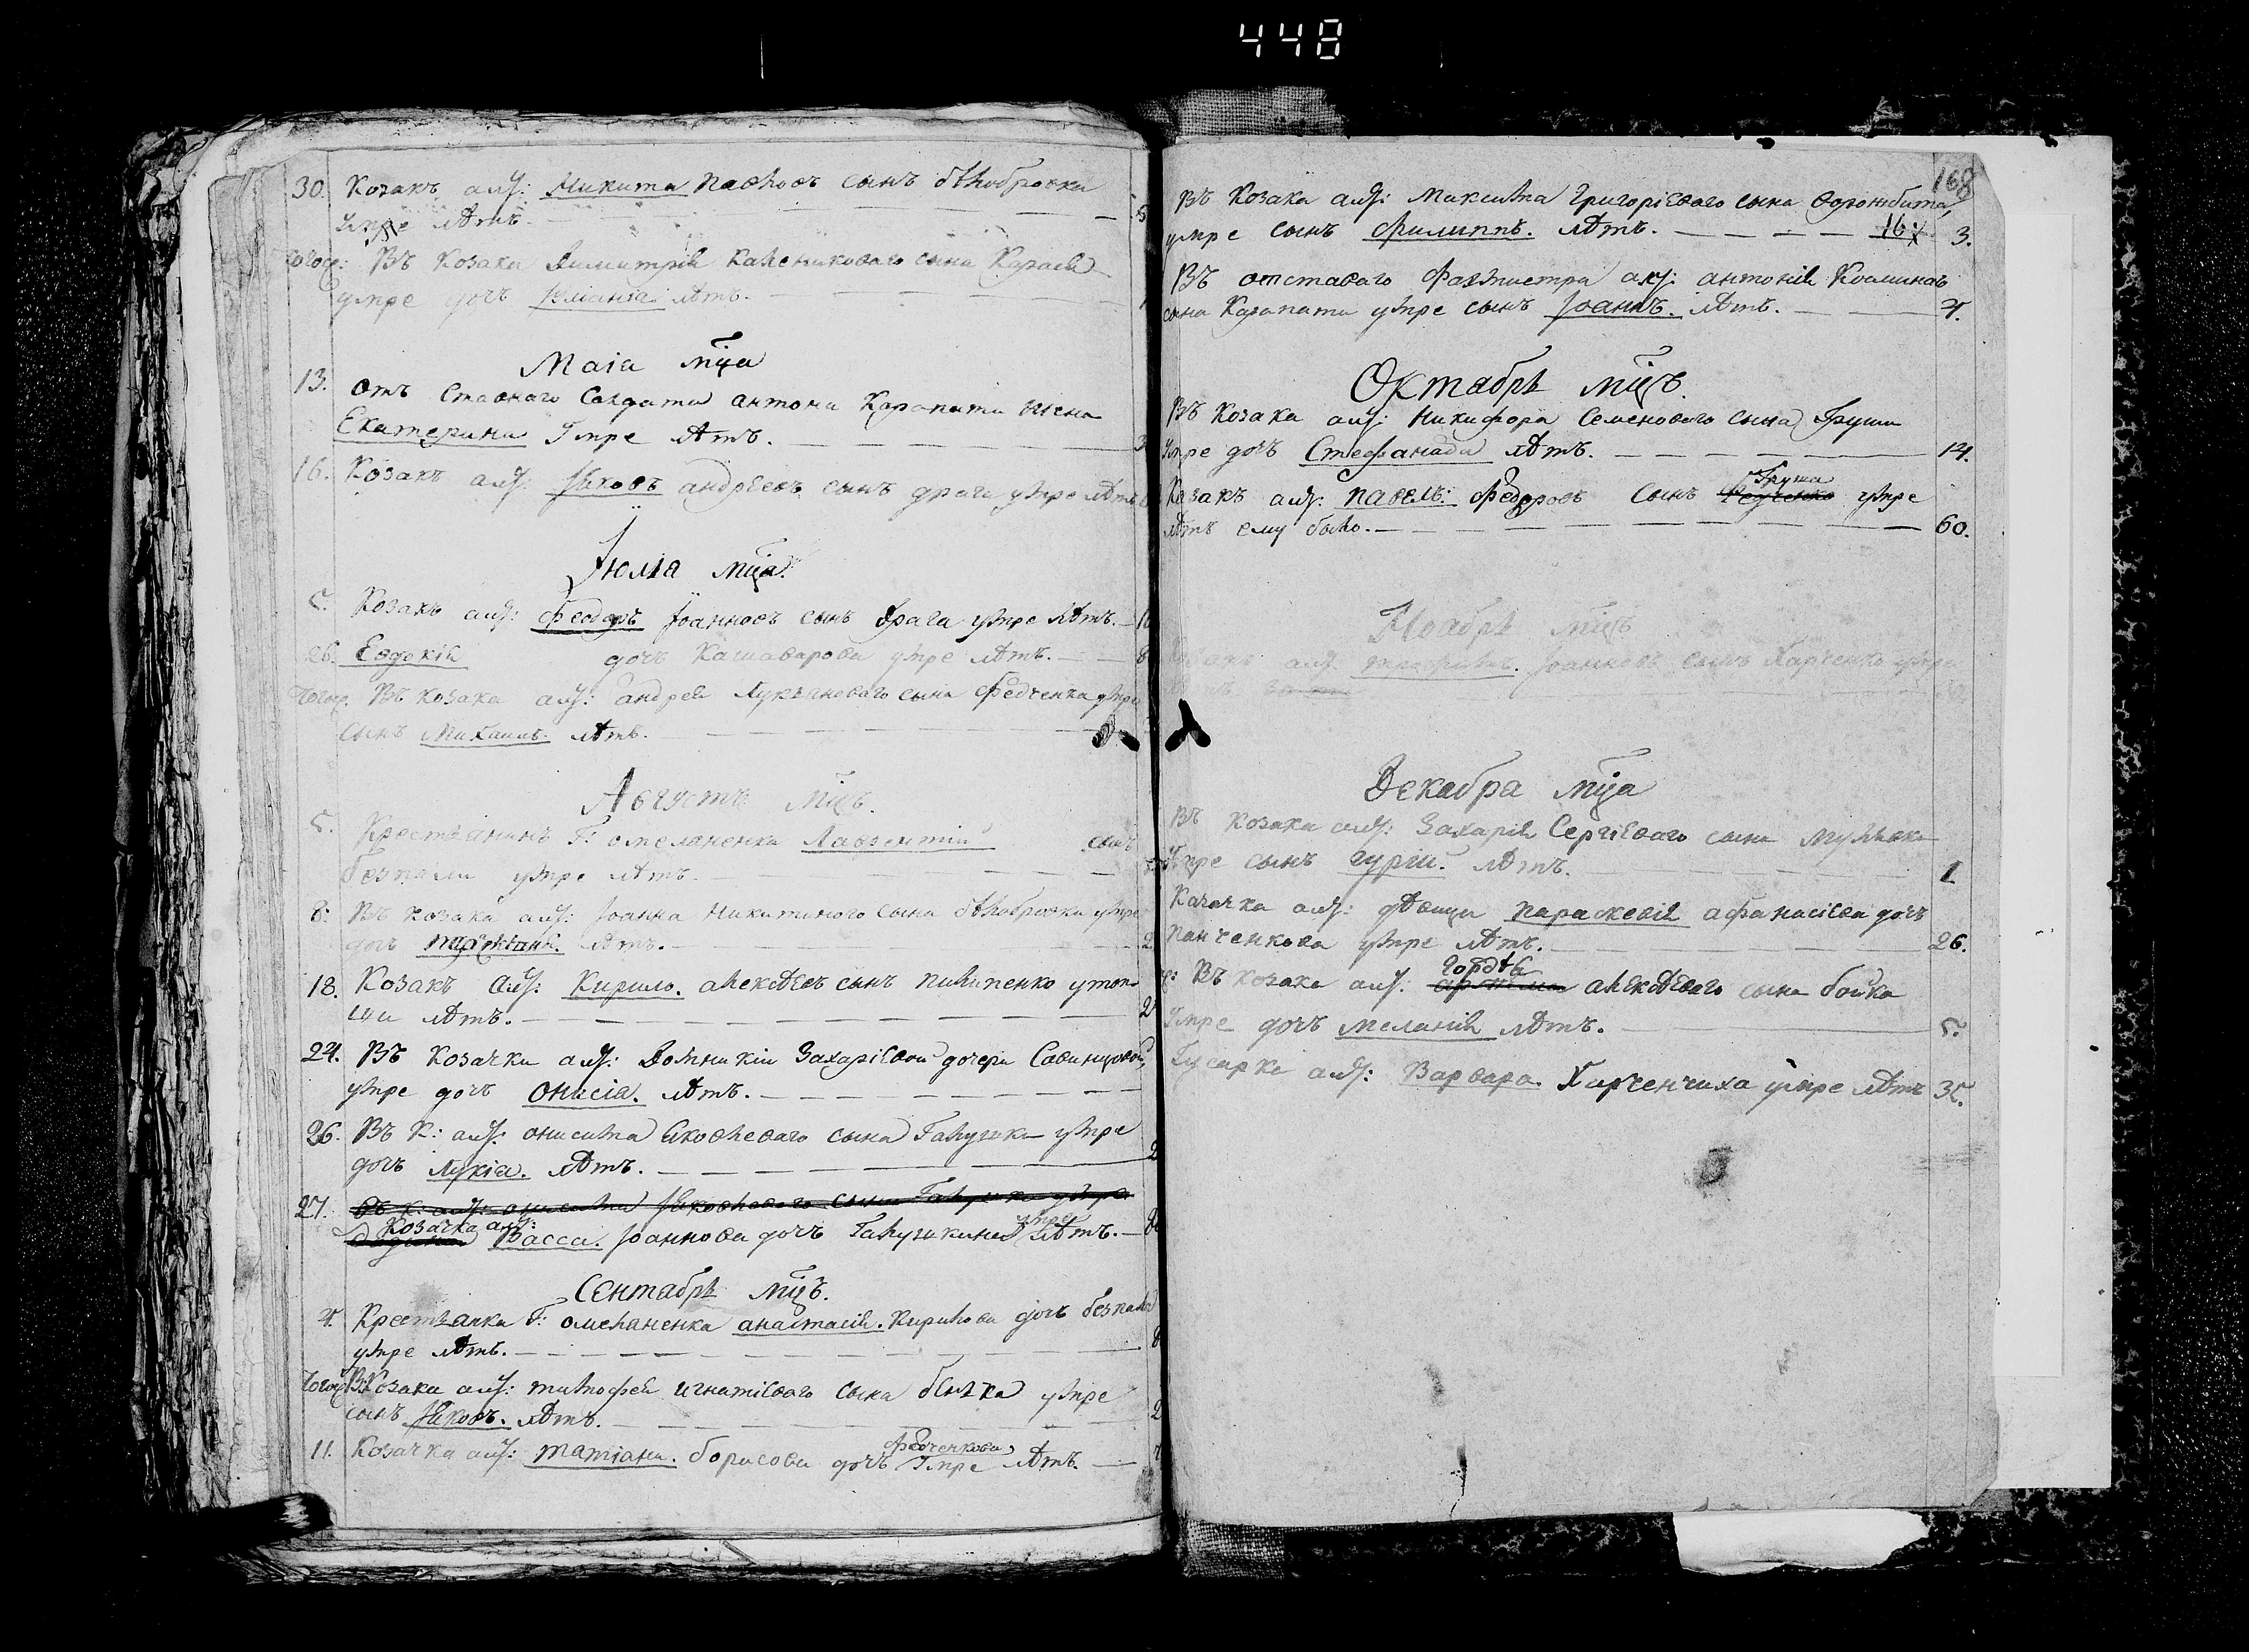 448
30. Козакъ алꙋ: Никита Павловъ сынъ бѣлобровка
Умре лѣтъ.
Тогожъ: Въ Козака Димитрія Калениковаго сына
умре дочь лѣтъ.
Маіа мца
13. отъ ставнаго Салдата антона Карапати жена
Екатерина Умре лѣтъ.
16. Козакъ алꙋ: Яковъ андреевъ сынъ драга умре лѣтъ
Іюлıа мца.
5. Козакъ алꙋ: Феодоръ Іоанновъ сынъ драга умре лѣтъ.
26. Евдокія дочь Кашаварова умре лѣтъ. 8
Тогожъ Въ козака алꙋ: андрея Лукъяноваго сына Федченка умре
сынъ Михаилъ лѣтъ.
Августъ мцъ.
5. Крестьянинъ Г: омеланенка Лаврентій сынъ
Безпали умре лѣтъ.
8: Въ козака алꙋ: Іоанна Никитиного сына бѣлобровки умре
дочь лѣтъ. 2
18. Козакъ алꙋ: Кирило. алексѣевъ сынъ пилипенко утоп
ши лѣтъ. 2
24. Въ Козачки алꙋ: Домникіи Захаріевой дочери Савинцовой,
умре дочь Онисіа. лѣтъ.
26. Въ К: алꙋ: онисима Яковлеваго сына Галушки умре
дочь Лукіа. лѣтъ. 2
27. Въ К: алꙋ: онисима Яковлеваго сына Галушки умре
Козачка алꙋ: умре
Васса. Іоаннова дочь Галушкина лѣтъ.
Сентабрь мцъ.
4. Крестьянка Г: омеланенка анастасія. Кирилова дочь безпала
умре лѣтъ.
Тогожъ Въ Козака алꙋ: тимофея игнатіеваго сына умре
сынъ Яковъ. лѣтъ. 2
Федченкова
11. Козачка алꙋ: татіана. борисова дочь Умре лѣтъ.
168
Въ Козака алꙋ: Максима Григоріеваго сына Воронжбита,
умре сынъ Филиппъ. лѣтъ. 16: 3.
Въ отставаго алꙋ: антонія
сына Карапати умре сынъ Іоаннъ. лѣтъ. 4.
Октабрь мцъ.
Въ Козака алꙋ: Никифора Семеноваго сына Груши
Умре дочь Стефанада лѣтъ. 14.
Груша
Козакъ алꙋ: павелъ: Федоровъ сынъ Федченко умре
лѣтъ ему было. 60.
Ноабрь мцъ
Козакъ алꙋ: Іоанновъ сынъ Харченко умре
Декабра мца
Въ Козака алꙋ: Захарія Сергіеваго сына
Умре сынъ Гурій. лѣтъ. 1
Качачка алꙋ: дѣвица параскевія афанасіева дочь
панченкова умре лѣтъ. 26.
Гордѣя
Въ козака алꙋ: артема алексѣеваго сына бойка
Умре дочь меланія лѣтъ. 5.
Гусарка алꙋ: Варвара. Харченчиха умре лѣтъ 35.